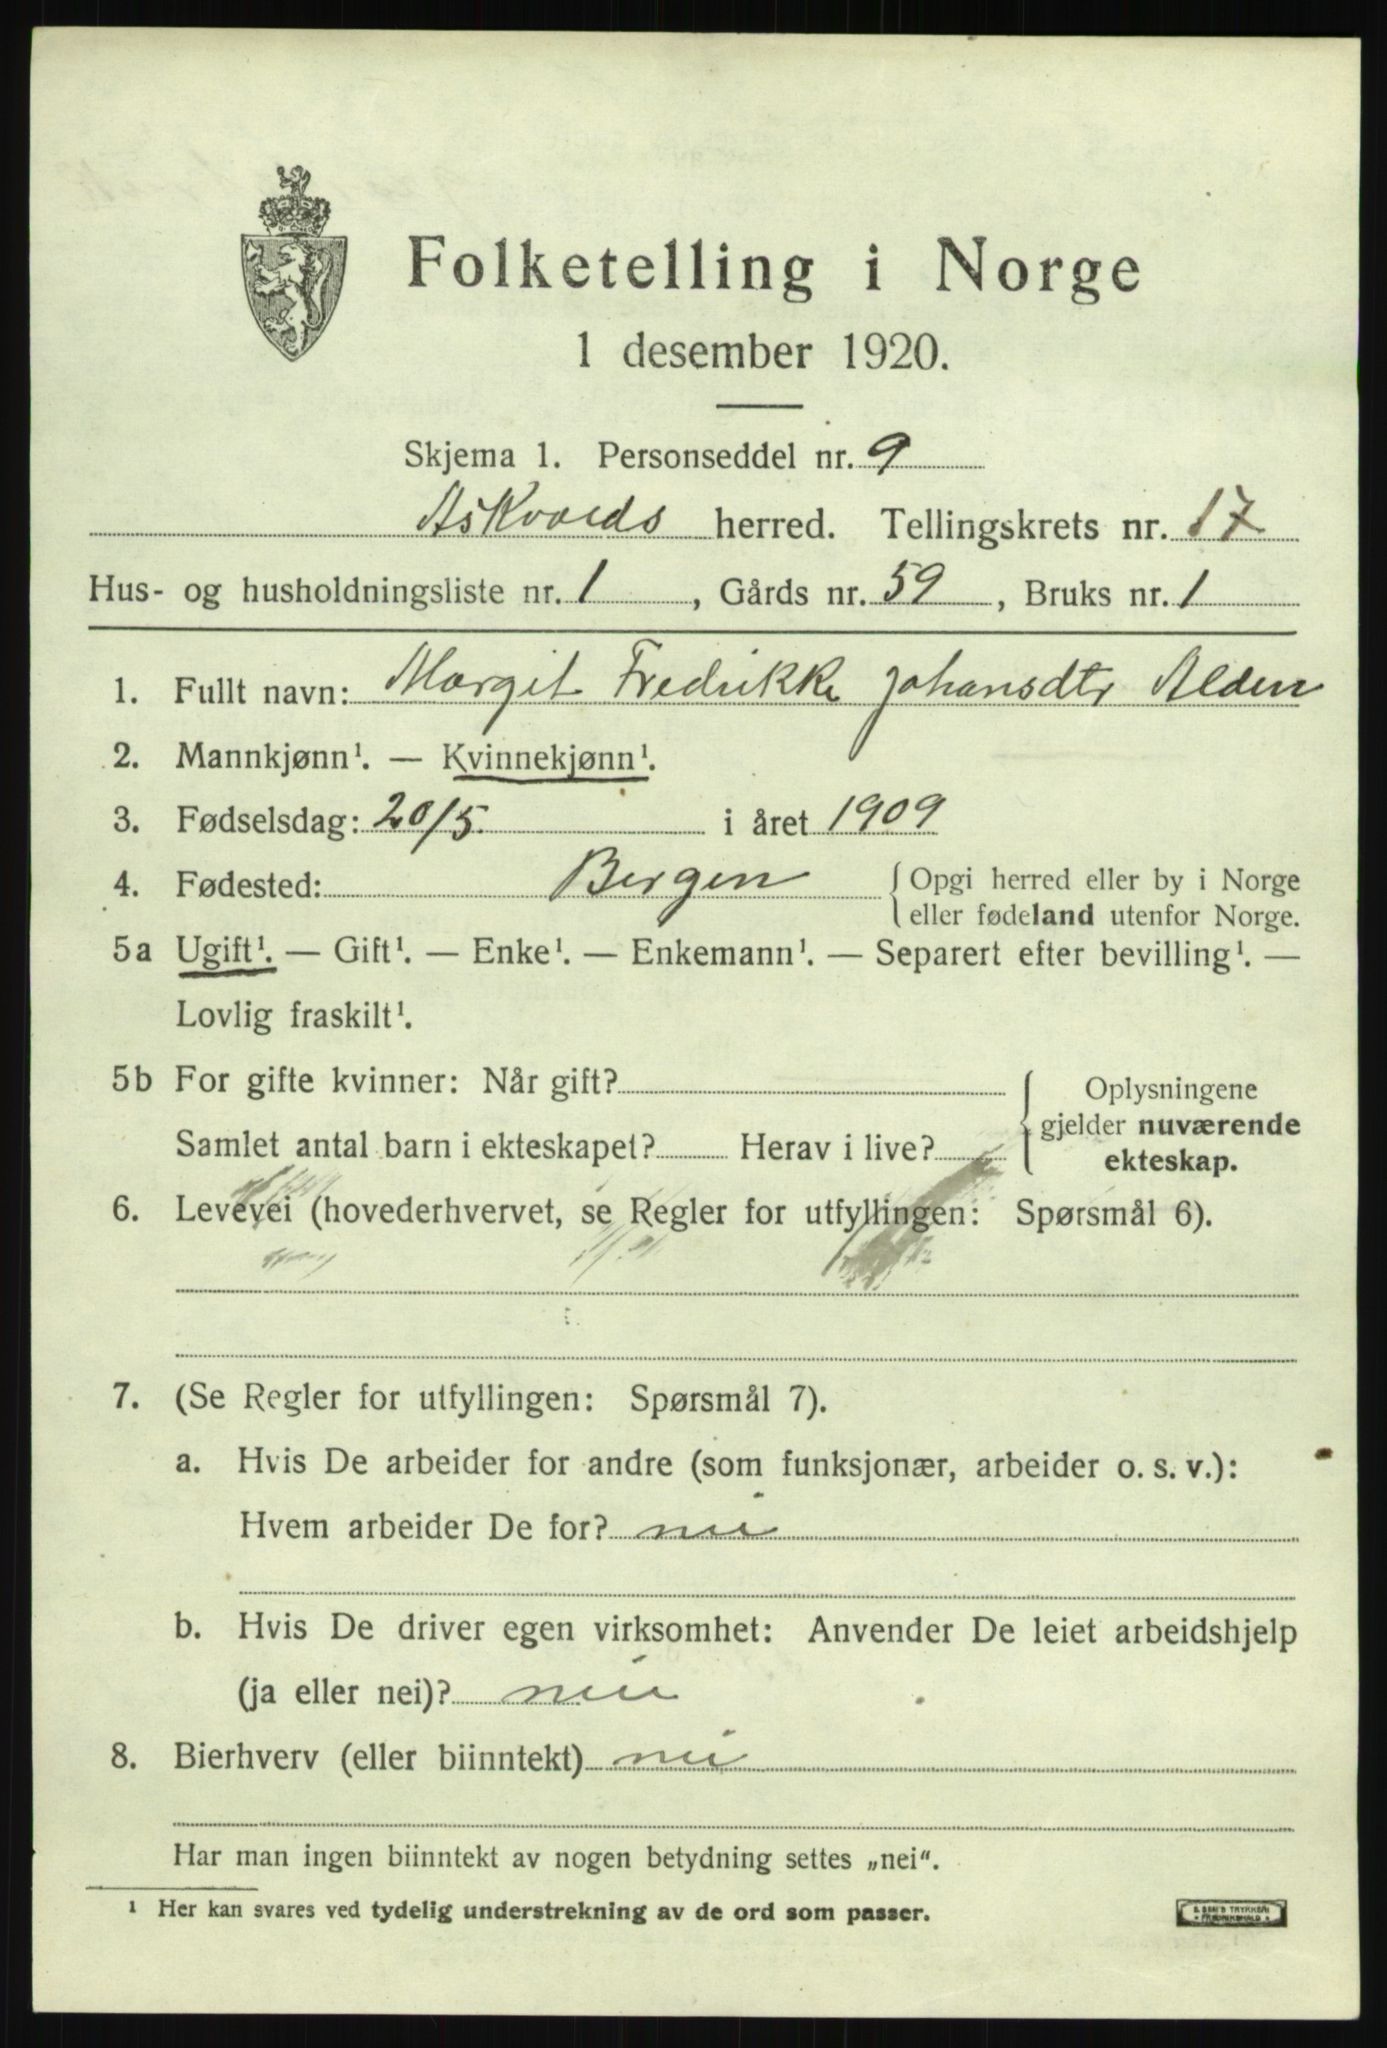 Folketelling i Norge
1 desember 1920.
Skjema 1. Personseddel nr. 9
Askvolds herred. Tellingskrets nr. 17
Hus- og husholdningsliste nr. 1, Gårds nr. 59, Bruks nr. 1
1. Fullt navn: Margit Fredrikke Johansdtr Alden
2. Mannkjønn¹. — Kvinnekjønn¹.
3. Fødselsdag: 20/5. i året 1909
4. Fødested: Bergen { Opgi herred eller by i Norge
eller fødeland utenfor Norge.
5a Ugift¹. — Gift¹. — Enke¹. — Enkemann¹. — Separert efter bevilling¹. —
Lovlig fraskilt¹.
5b For gifte kvinner: Når gift? { Oplysningene
gjelder nuværende
Samlet antal barn i ekteskapet? Herav i live? ekteskap.
6. Levevei (hovederhvervet, se Regler for utfyllingen: Spørsmål 6).
7. (Se Regler for utfyllingen: Spørsmål 7).
a. Hvis De arbeider for andre (som funksjonær, arbeider o. s. v.):
Hvem arbeider De for? nei
b. Hvis De driver egen virksomhet: Anvender De leiet arbeidshjelp
(ja eller nei)? nei
8. Bierhverv (eller biinntekt) nei
Har man ingen biinntekt av nogen betydning settes „nei“.
¹ Her kan svares ved tydelig understrekning av de ord som passer.